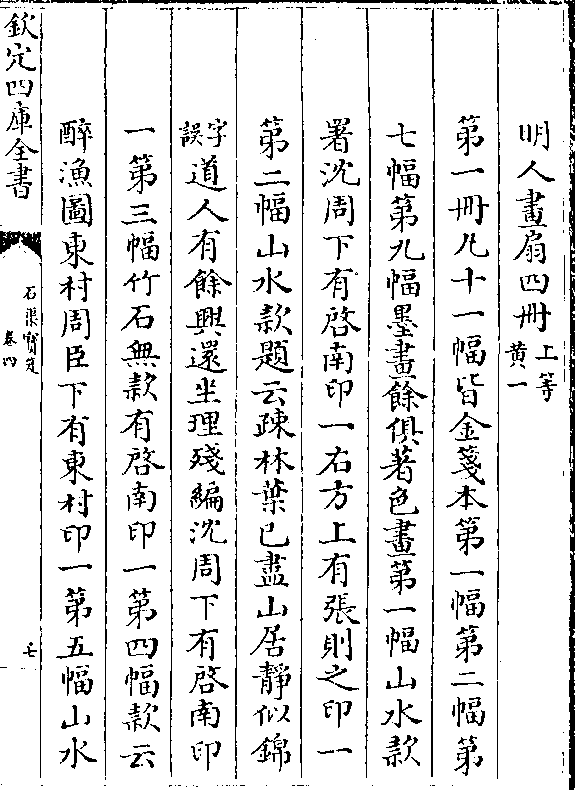 明人畫扇四冊上等黃一
第一冊凡十一幅皆金箋本第一幅第二幅第
七幅第九幅墨畫餘俱著色畫第一幅山水款
署沈周下有啓南印一右方上有張則之印一
第二幅山水款題云疎林葉已盡山居靜似錦
字誤道人有餘興還坐理殘編沈周下有啓南印
一第三幅竹石無款有啓南印一第四幅款云
醉漁圖東村周臣下有東村印一第五幅山水
欽定四庫全書
石渠寶笈
卷四
七